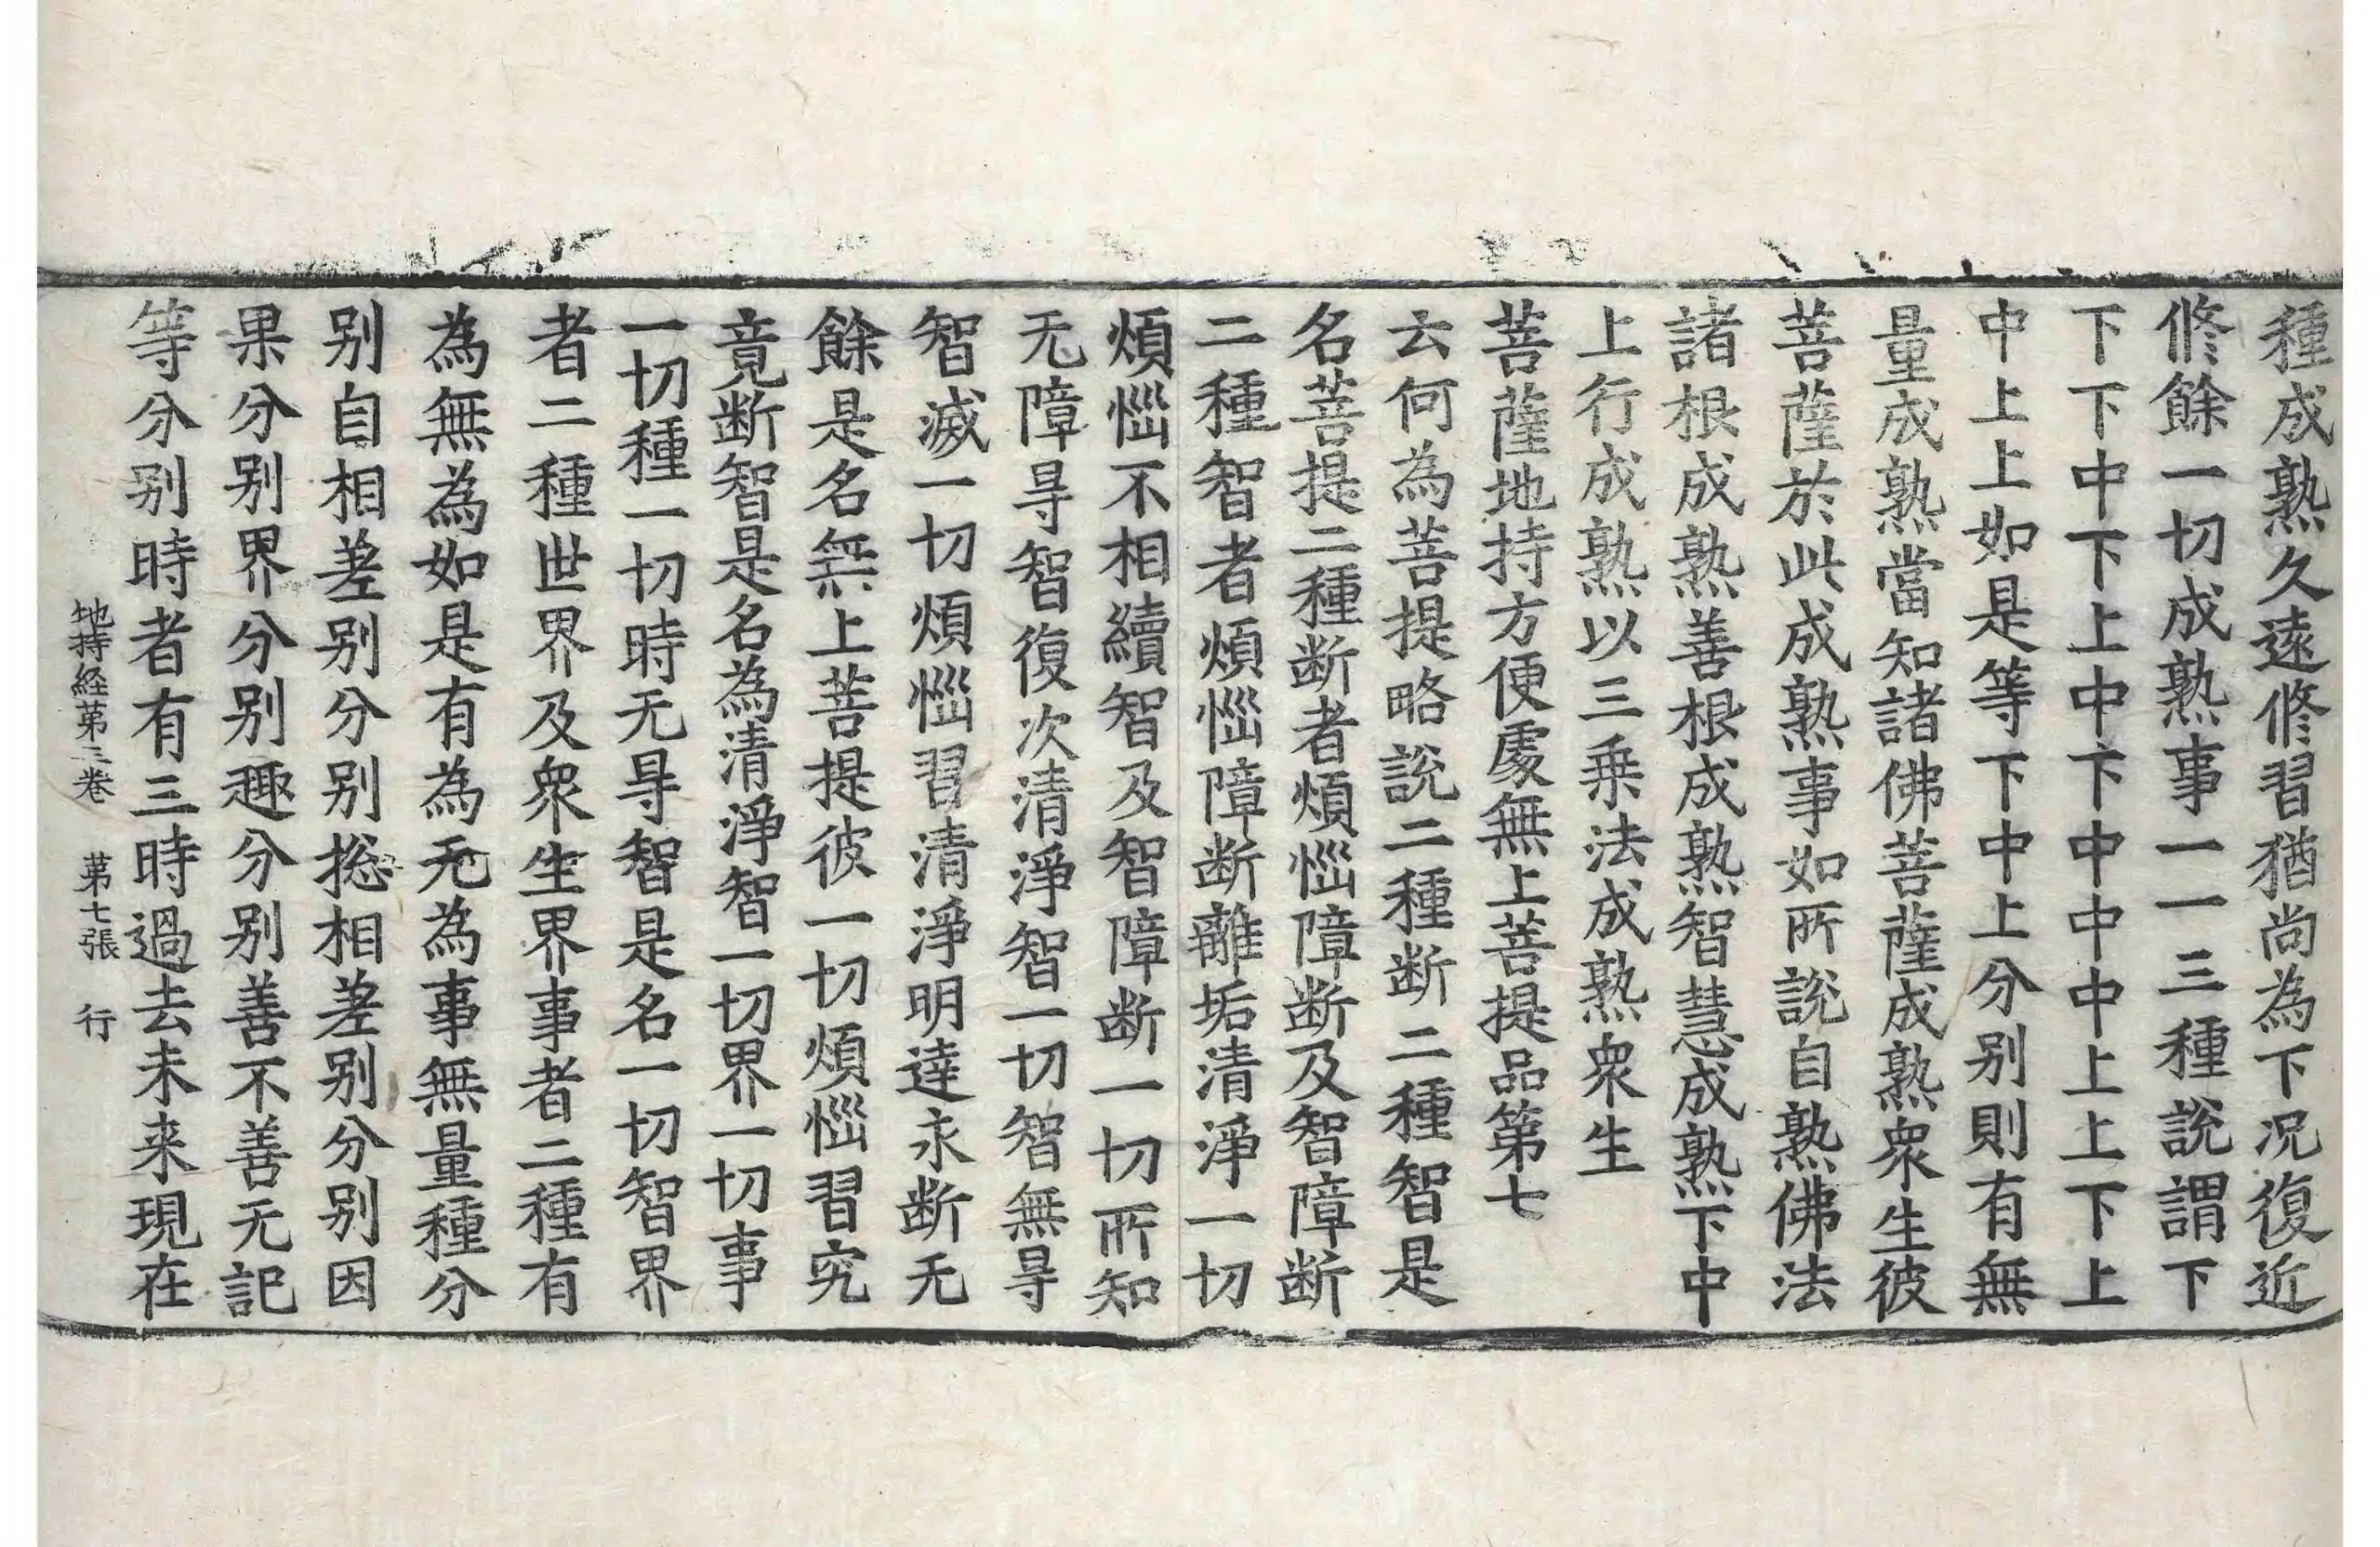 種成熟久遠修習猶尚為下况復近
修餘一切成熟事一一三種說謂下
下下中下上中下中中中上上下上
中上上如是等下中上分别則有無
量成熟當知諸佛菩薩成熟衆生彼
菩薩於此成熟事如所說自熟佛法
諸根成熟善根成熟智慧成熟下中
上行成熟以三乗法成熟衆生
菩薩地持方便處無上菩提品第七
云何為菩提略說二種断二種智是
名菩提二種断者煩惱障断及智障断
二種智者煩惱障断離垢清淨一切
煩惱不相續智及智障断一切所知
无障㝵智復次清淨智一切智無㝵
智滅一切煩惱習清淨明達永断无
餘是名無上菩提彼一切煩惱習究
竟断智是名為清淨智一切界一切事
一切種一切時无㝵智是名一切智界
者二種世界及衆生界事者二種有
為無為如是有為无為事無量種分
别自相差别分别揔相差别分别因
果分别界分别趣分别善不善无記
等分别時者有三時過去未来現在
地持経第三卷 第七張 行